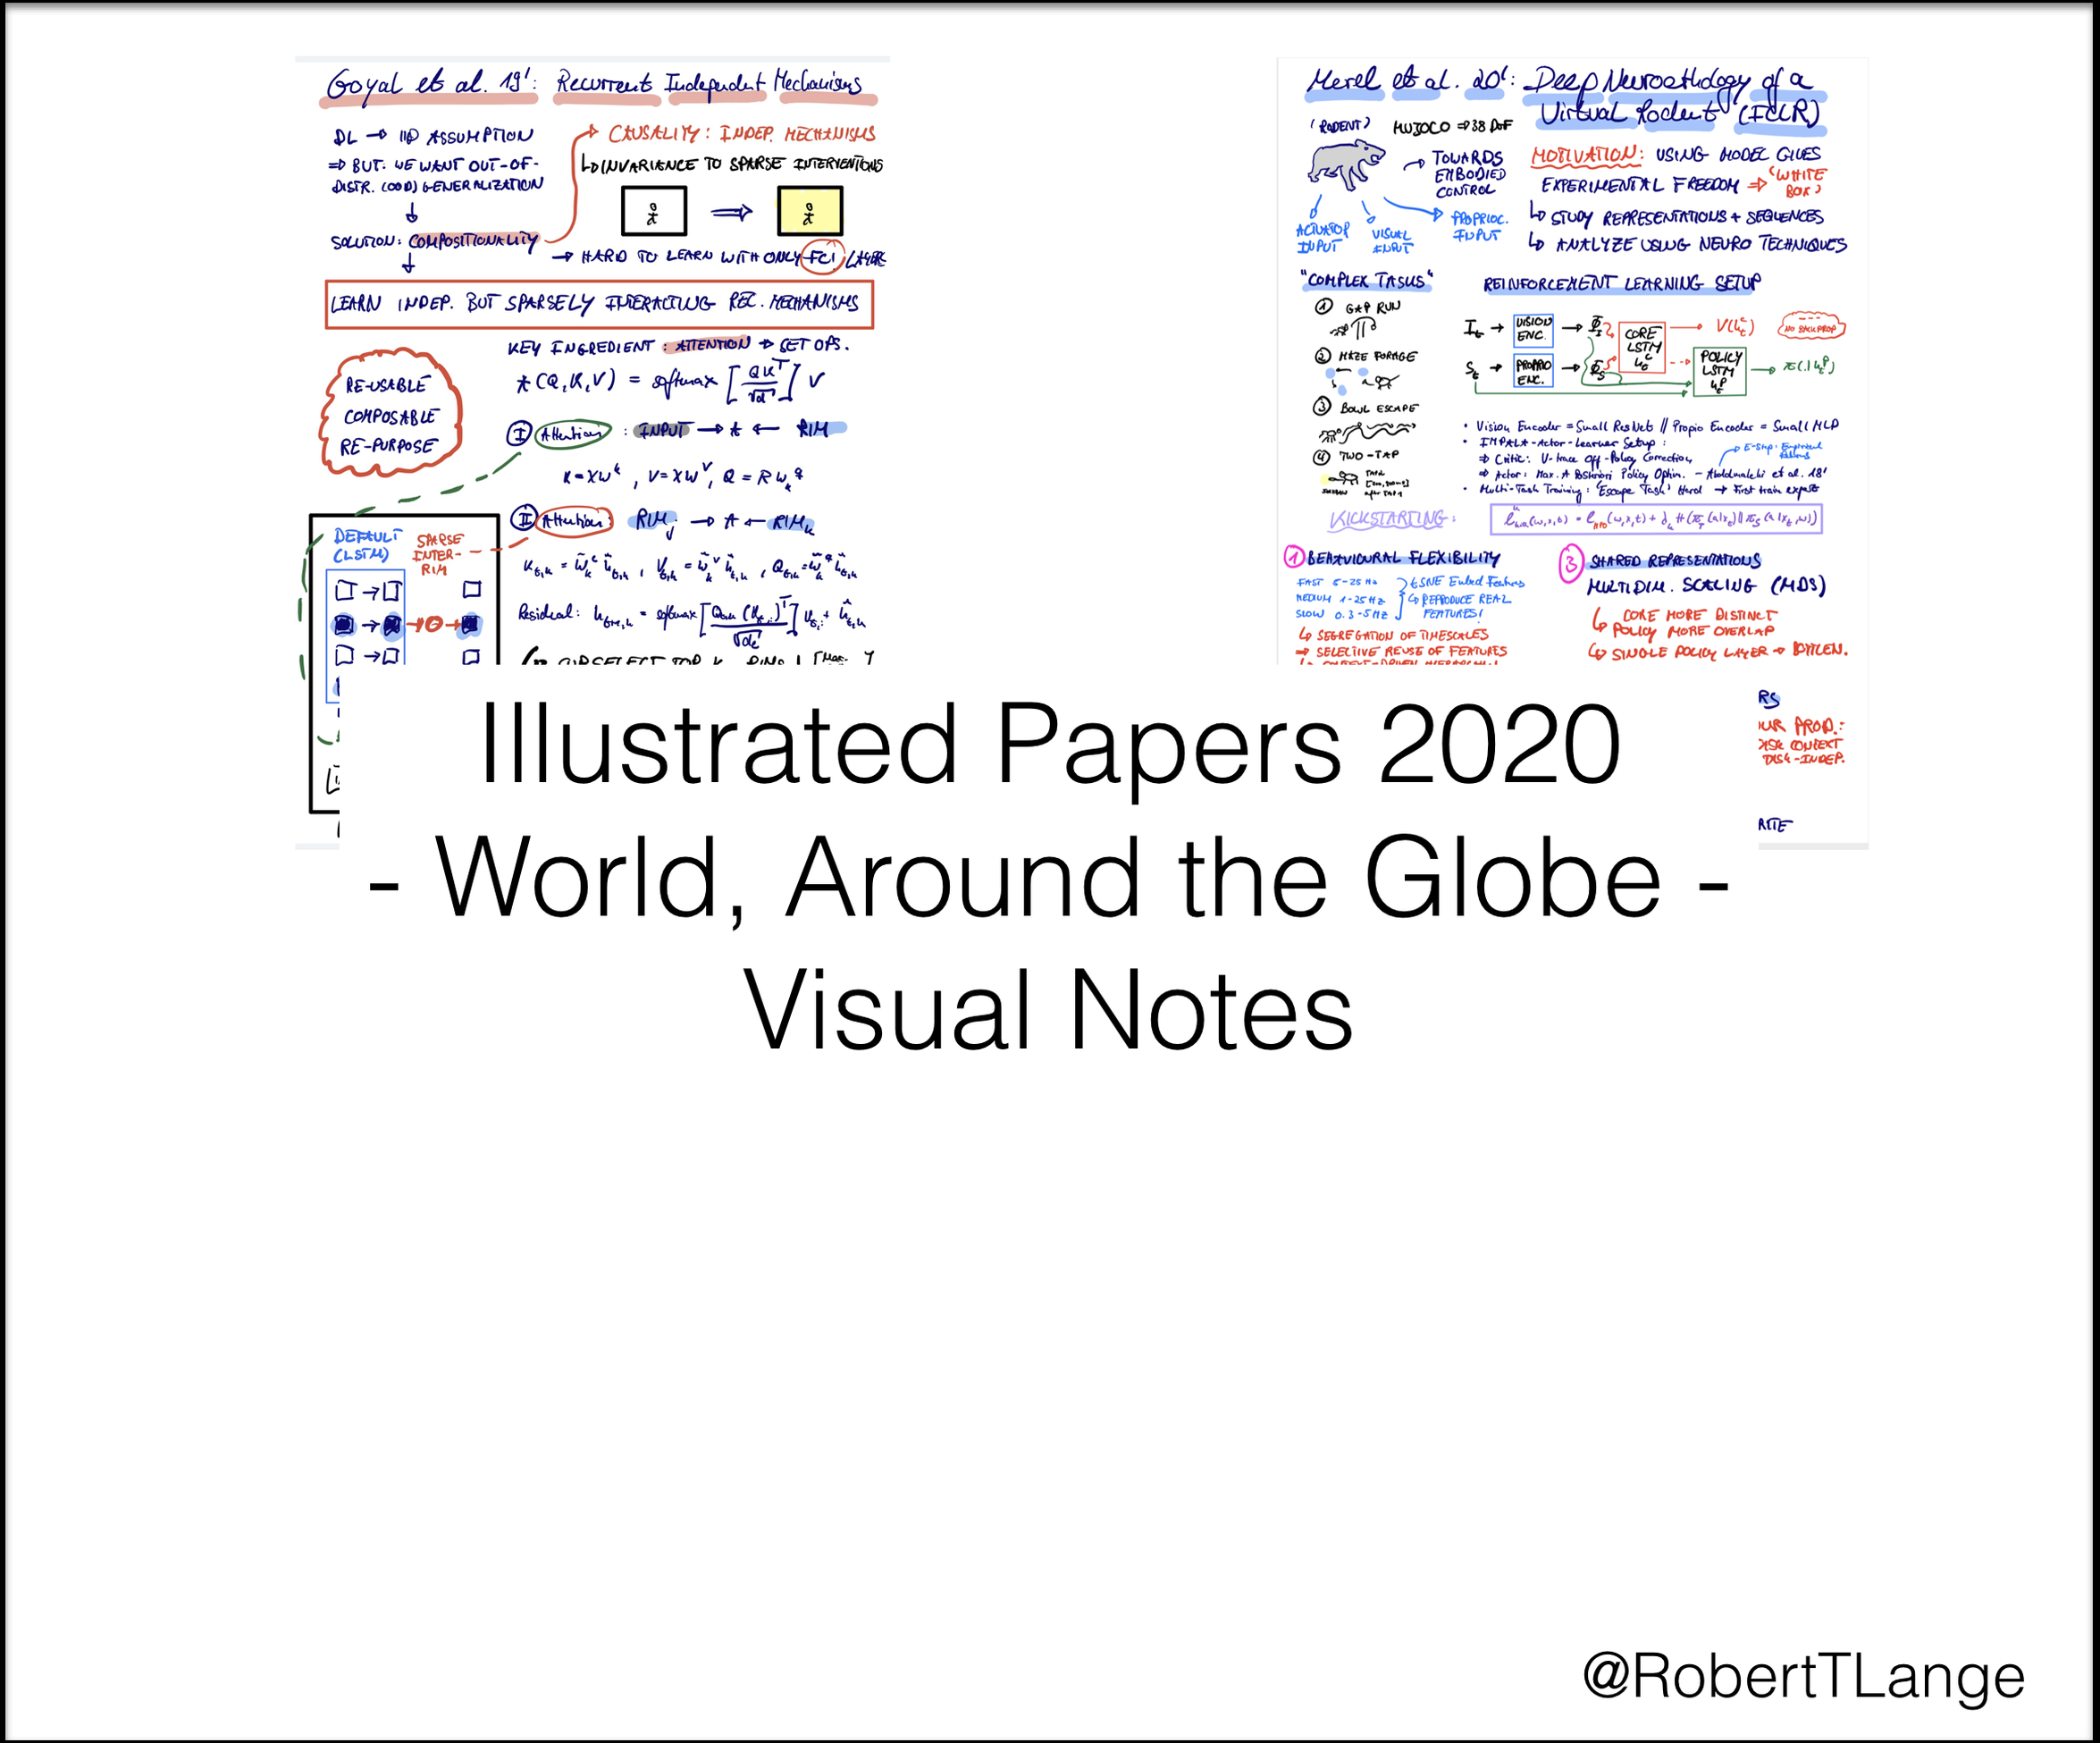 Goyal et al. 19': Recurrent Independent Mechanisms
DL → IID ASSUMPTION
⇒ BUT: WE WANT OUT-OF-
DISTR. (OOD) GENERALIZATION
↓
SOLUTION: COMPOSITIONALITY
↓
CAUSALITY: INDEP. MECHANISMS
↳ INVARIANCE TO SPARSE INTERVENTIONS
→ HARD TO LEARN WITH ONLY FC! LAYER
LEARN INDEP. BUT SPARSELY INTERACTING REC. MECHANISMS
RE-USABLE
COMPOSABLE
RE-PURPOSE
KEY INGREDIENT: ATTENTION → SET OPS.
A (Q, K, V) = softmax [QK^T / √d] V
I Attention: INPUT → A ← RIM
K = XW^k, V = XW^v, Q = RW_k^q
II Attention: RIM_j → A ← RIM_k
Residual:
DEFAULT
(LSTM)
SPARSE
INTER-
RIM
SUBSELECT TOP K RIMS
Merel et al. 20': Deep Neuroethology of a
Virtual Rodent (ICLR)
(RODENT)
MUJOCO ⇒ 38 DoF
→ TOWARDS
EMBODIED
CONTROL
ACTUATOR
INPUT
VISUAL
INPUT
PROPRIOC.
INPUT
MOTIVATION: USING MODEL GIVES
EXPERIMENTAL FREEDOM ⇒ 'WHITE
BOX'
↳ STUDY REPRESENTATIONS + SEQUENCES
↳ ANALYZE USING NEURO TECHNIQUES
"COMPLEX TASKS"
1 GAP RUN
2 MAZE FORAGE
3 BOWL ESCAPE
4 TWO-TAP
REINFORCEMENT LEARNING SETUP
I_t → VISION
ENC.
S_t → PROPRIO
ENC.
CORE
LSTM
POLICY
LSTM
NO BACKPROP
• Vision Encoder = Small ResNet // Propio Encoder = Small MLP
• IMPALA-Actor-Learner Setup:
⇒ Critic: V-trace Off-Policy Correction
⇒ Actor: Max. A Posteriori Policy Optim. - Abdolmaleki et al. 18'
• Multi-Task Training: 'Escape Task' Hard → First train expert
KICKSTARTING:
1 BEHAVIOURAL FLEXIBILITY
FAST 5-25 Hz
MEDIUM 1-25 Hz
SLOW 0.3-5 Hz
tSNE Embed Features
↳ REPRODUCE REAL
FEATURES!
↳ SEGREGATION OF TIMESCALES
→ SELECTIVE REUSE OF FEATURES
3 SHARED REPRESENTATIONS
MULTIDIM. SCALING (MDS)
↳ CORE MORE DISTINCT
POLICY MORE OVERLAP
↳ SINGLE POLICY LAYER → BOTTLEN.
Illustrated Papers 2020
- World, Around the Globe -
Visual Notes
@RobertTLange